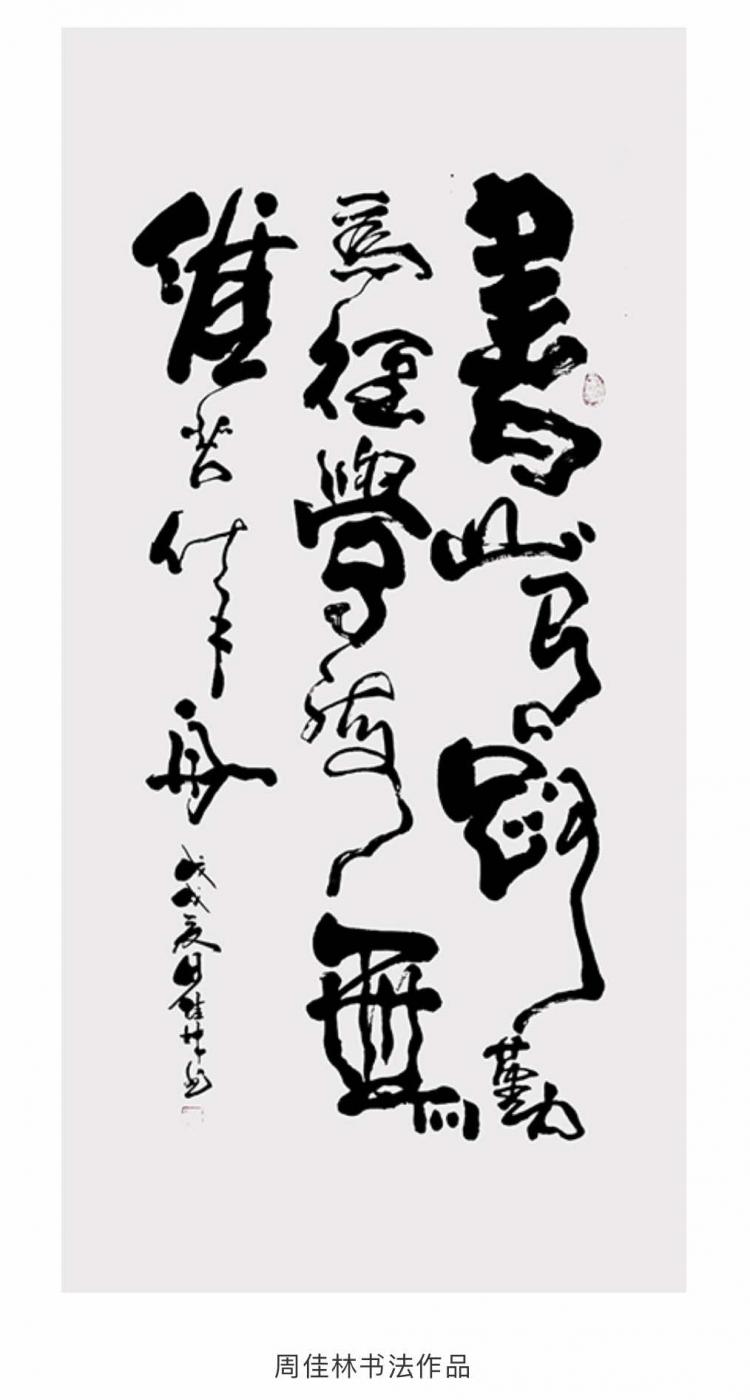 書山有路勤
為徑學海無
維苦作舟
戊戌夏日佳林
周佳林书法作品